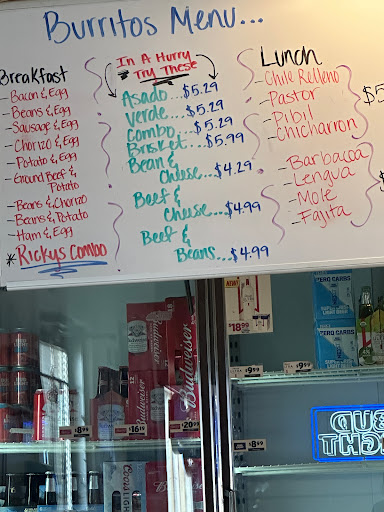 Burritos Menu...
Breakfast
- Bacon & Egg
- Beans & Egg
- Sausage & Egg
- Chorizo & Egg
- Potato & Egg
- Ground Beef &
Potato
- Beans & Chorizo
- Beans & Potato
- Ham & Egg
* Rickys Combo
In A Hurry
Try These
Asado...$5.29
Verde...$5.29
Combo...$5.29
Brisket...$5.99
Bean &
Cheese...$4.29
Beef &
Cheese...$4.99
Beef &
Beans...$4.99
Lunch
- Chile Relleno
- Pastor
- Pibil
- Chicharron
$5
- Barbacoa
- Lengua
- Mole
- Fajita
NEW!
$18.99
ZERO CARBS
ZERO CARBS
$9.99
$9.99
Budweiser
Budweiser
Budweiser
$8.99
$16.19
$20.99
$8.99
BUD
LIGHT
Coors LIGHT